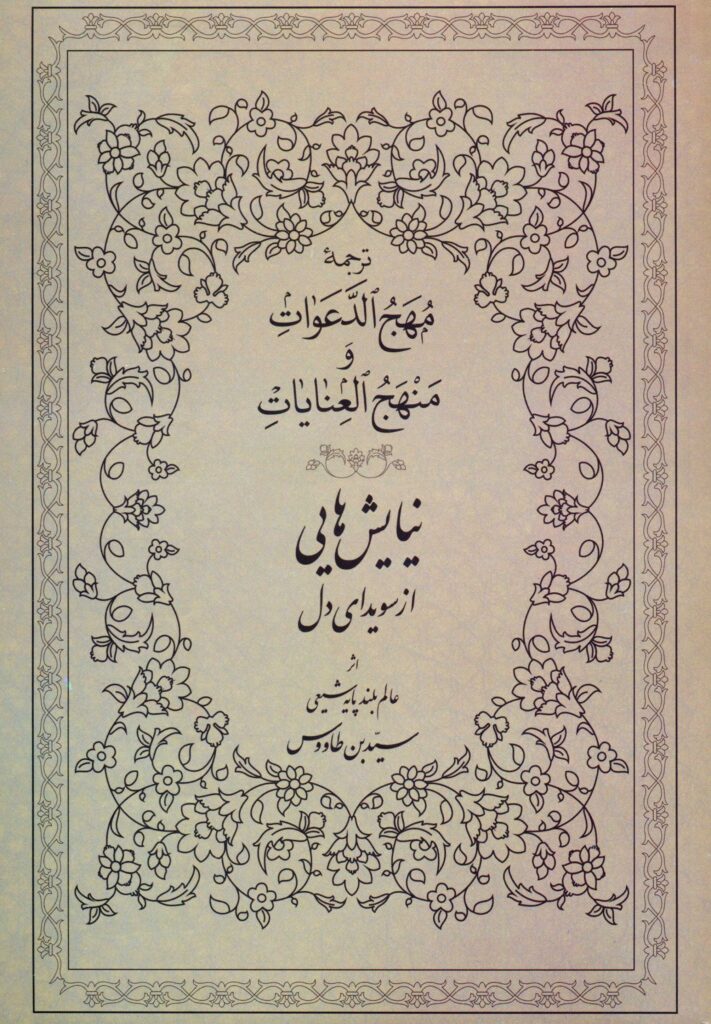 ترجمهٔ
مُهَجُ ٱلدَّعَوٰاتِ
وَ
مَنْهَجُ ٱلعِنٰایٰاتِ
نیایش‌هایی
از سویدای دل
اثر
عالم بلند پایه شیعی
سیّد بن طاووس